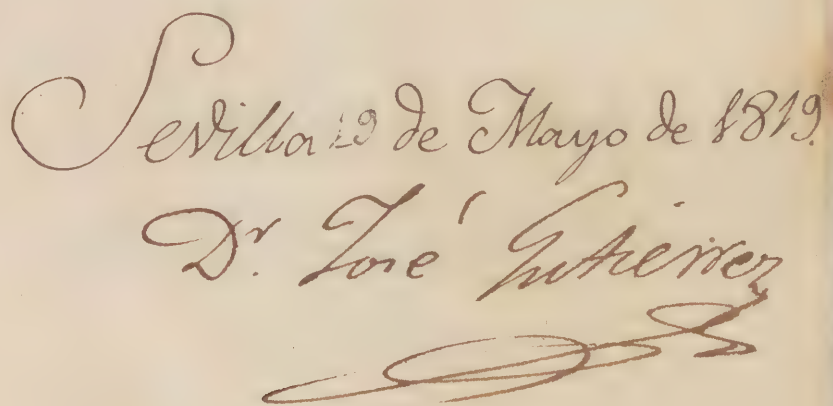 Sevilla 19 de Mayo de 1819.
Dr. José Gutierrez